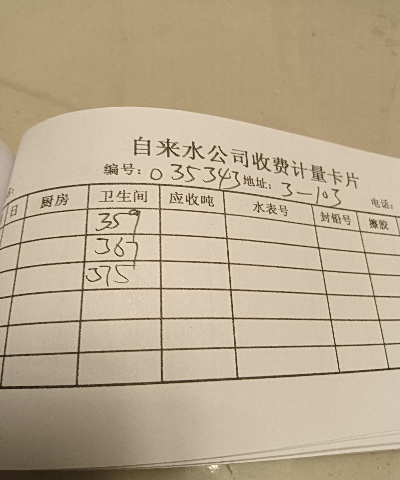 自来水公司收费计量卡片
编号：035343 地址：3-103 电话：
日 厨房 卫生间 应收吨 水表号 封铅号 擦胶
359
367
375